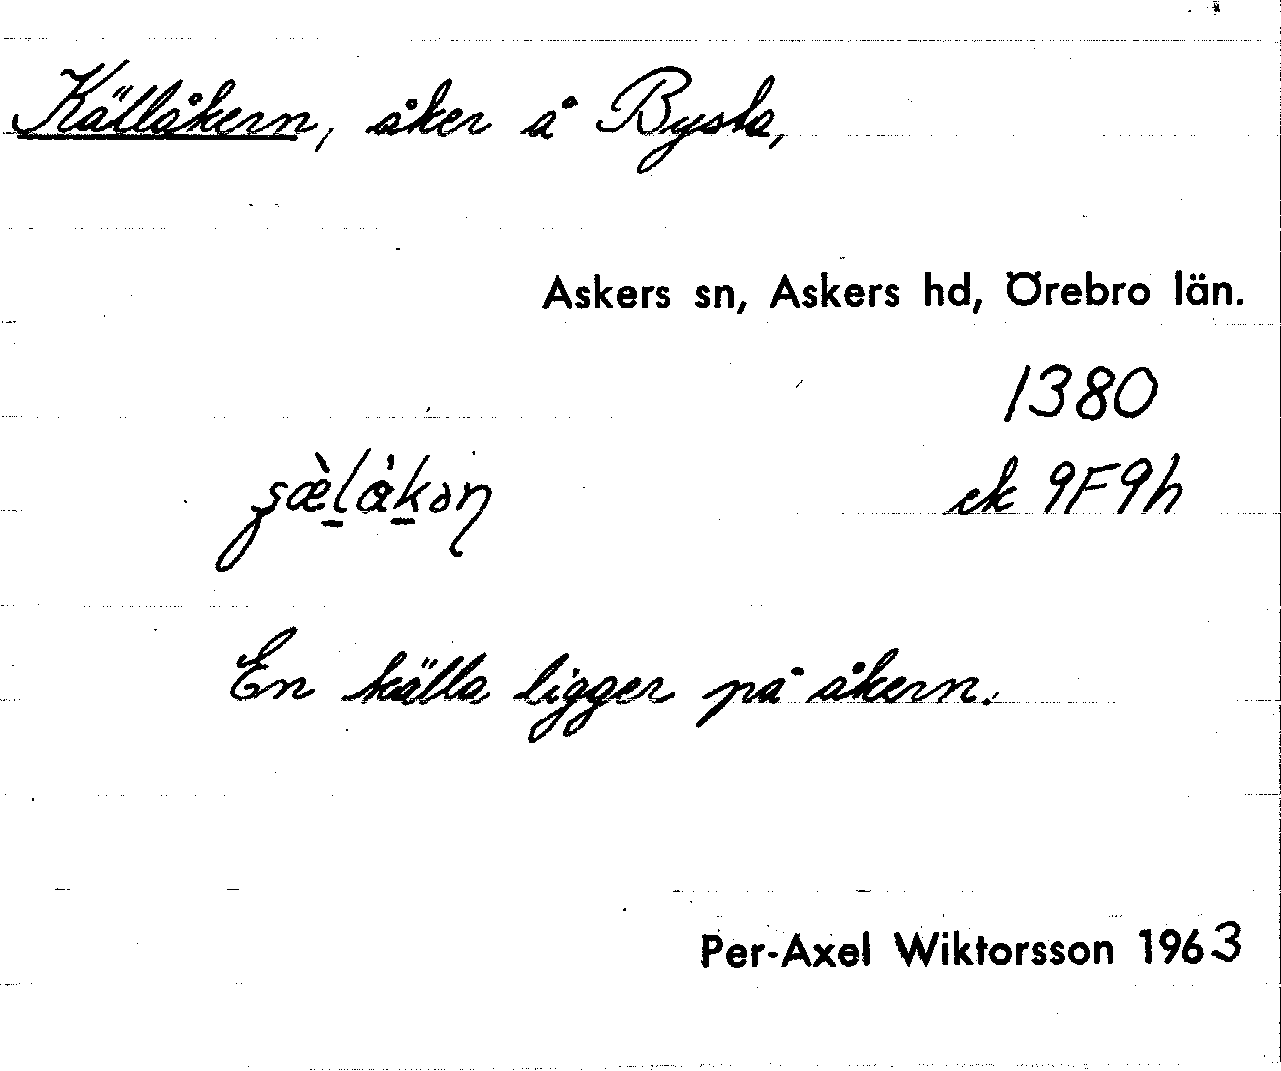 Källåkern, åker å Bysta,
Askers sn, Askers hd, Örebro län.
1380
ek 9F9h
En källa ligger på åkern.
Per-Axel Wiktorsson 1963